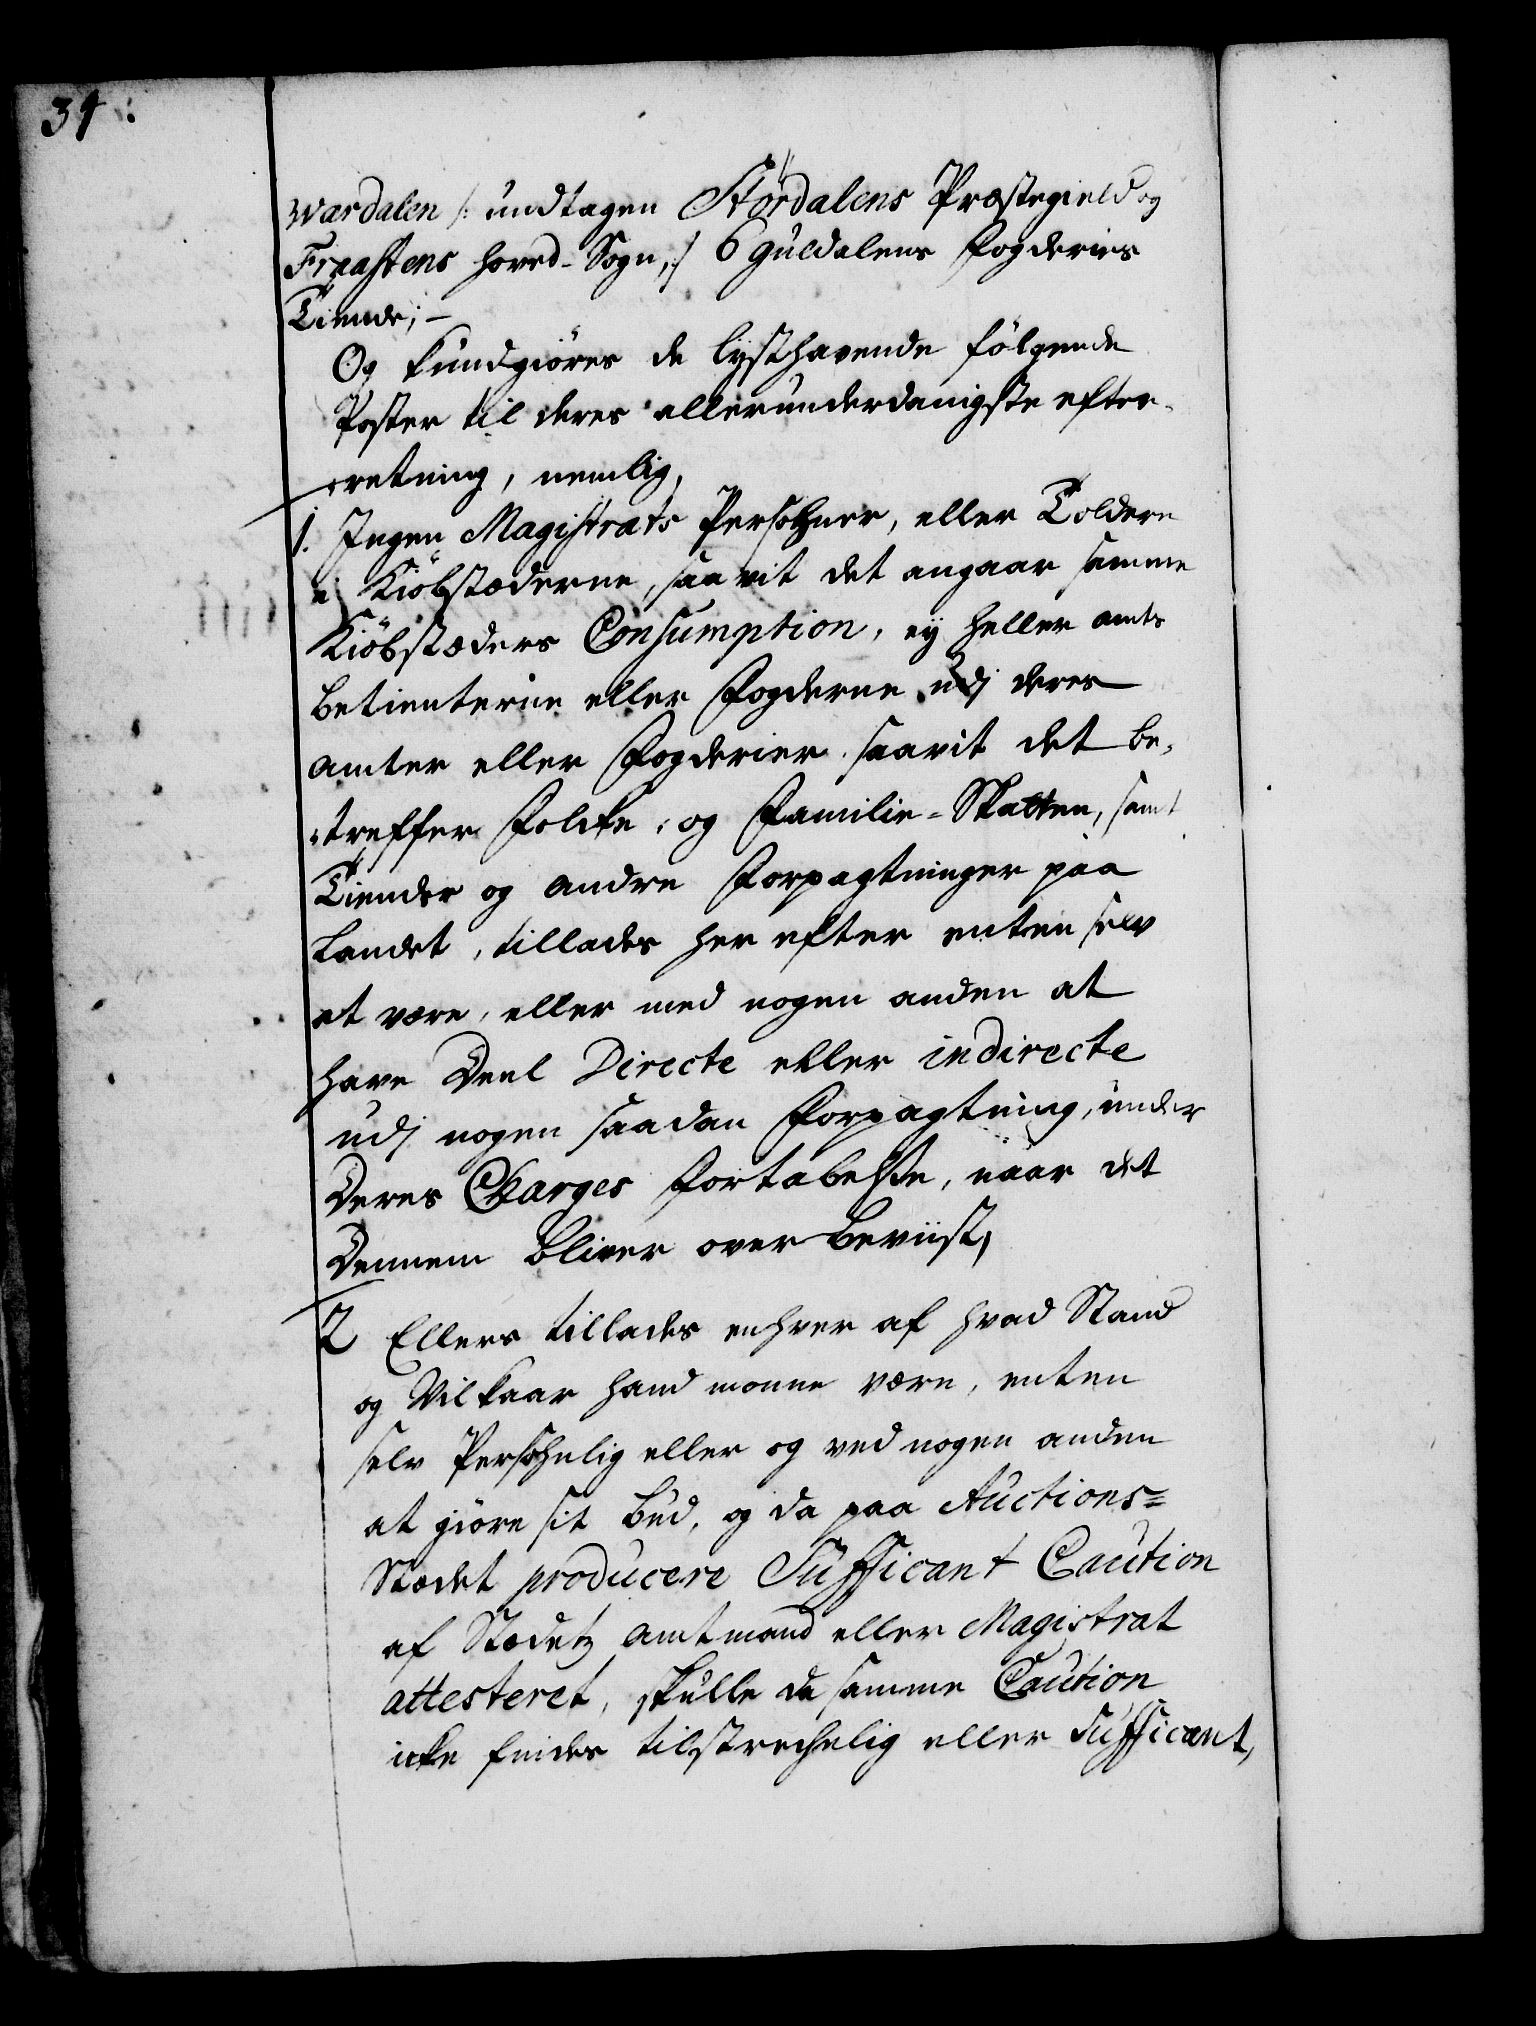 34:
Wardalen /: undtagen Stördalens Præstegield og
Fraastens hoved-Sogn, :/ 6 Guldalens Fogderies
Tiende; –
Og kundgiöres de lysthavende fölgende
Poster til deres allerunderdanigste efter-
retning, nemlig,
1. Ingen Magistrats Persohner, eller Toldere
i Kiöbstæderne, saa vit det angaar samme
Kiöbstæders Consumption, ey heller amts
betienterne eller Fogderne udj deres
amter eller Fogderier saavit det be-
treffer Folcke- og Familie-Skatten, samt
Tiender og andre Forpagtninger paa
Landet, tillades her efter enten selv
at være, eller med nogen anden at
have Deel Directe eller indirecte
udj nogen saadan Forpagtning, under
Deres Charges Fortabelse, naar det
Dennem bliver over beviist,
2 Ellers tillades enhver af hvad Stand
og Vilkaar hand monne være, enten
selv Persohnlig eller og ved nogen anden
at giöre sit bud, og da paa Auctions=
Stædet producere Sufficant Caution
af Stædetz amtmand eller Magistrat
attesteret, skulle da samme Caution
icke findes tilstrechelig eller Sufficant,